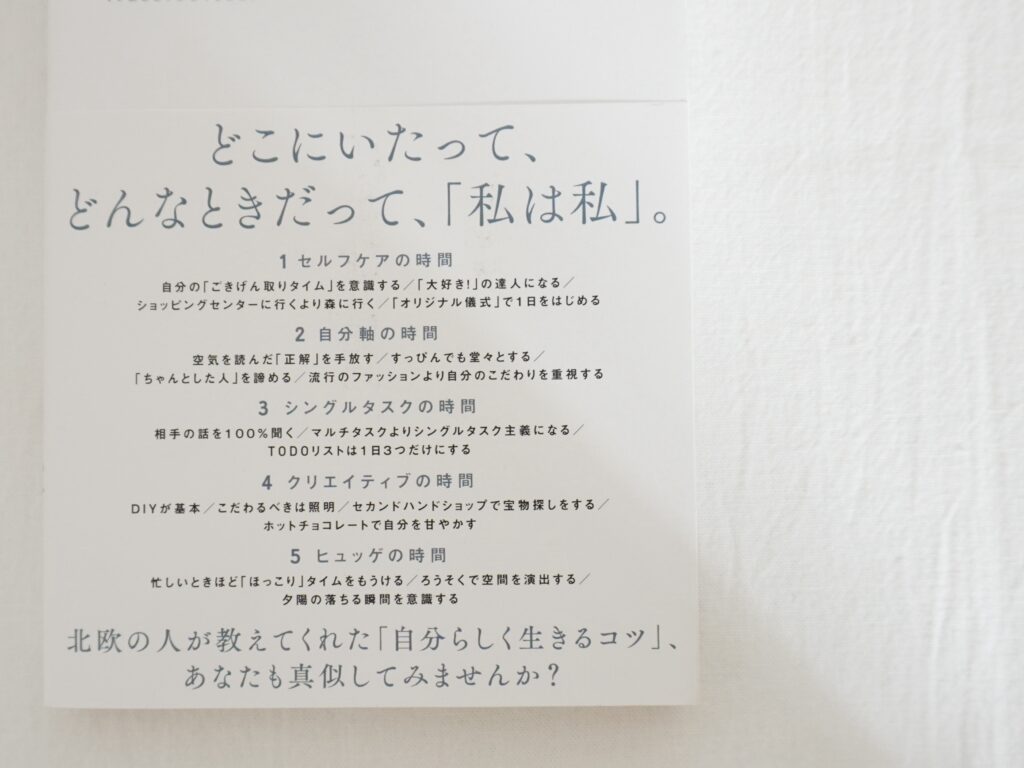 どこにいたって、
どんなときだって、「私は私」。
1 セルフケアの時間
自分の「ごきげん取りタイム」を意識する／「大好き!」の達人になる／
ショッピングセンターに行くより森に行く／「オリジナル儀式」で1日をはじめる
2 自分軸の時間
空気を読んだ「正解」を手放す／すっぴんでも堂々とする／
「ちゃんとした人」を諦める／流行のファッションより自分のこだわりを重視する
3 シングルタスクの時間
相手の話を100%聞く／マルチタスクよりシングルタスク主義になる／
TODOリストは1日3つだけにする
4 クリエイティブの時間
DIYが基本／こだわるべきは照明／セカンドハンドショップで宝物探しをする／
ホットチョコレートで自分を甘やかす
5 ヒュッゲの時間
忙しいときほど「ほっこり」タイムをもうける／ろうそくで空間を演出する／
夕陽の落ちる瞬間を意識する
北欧の人が教えてくれた「自分らしく生きるコツ」、
あなたも真似してみませんか？